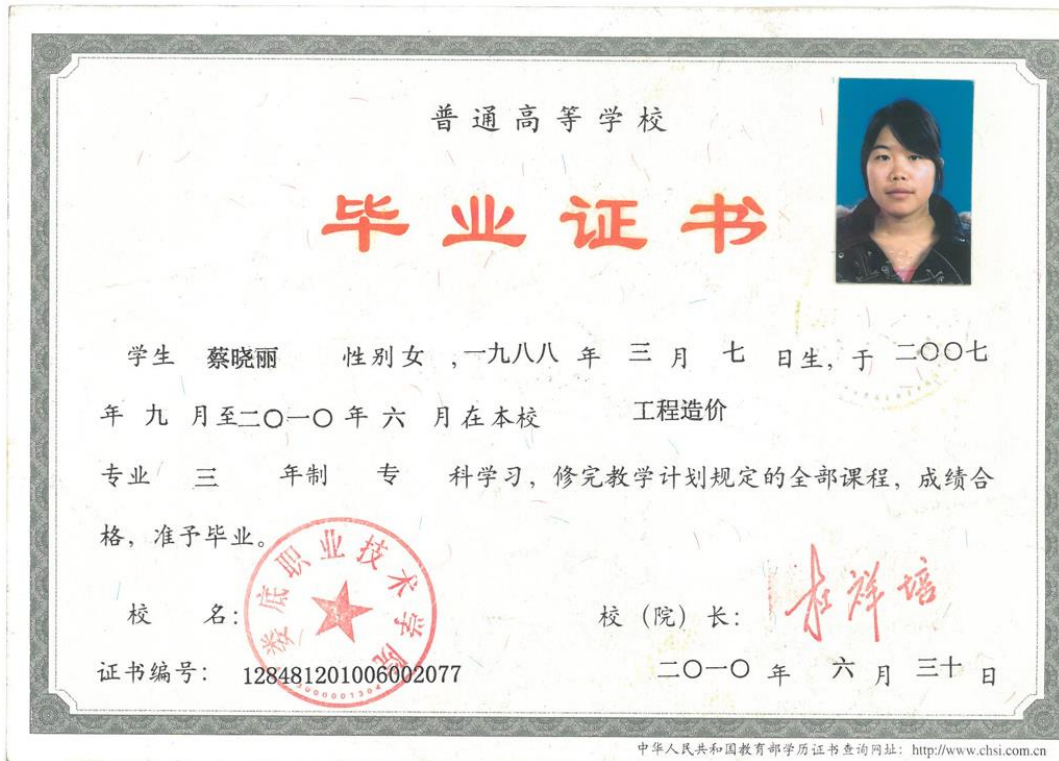 普通高等学校
毕业证书
学生 蔡晓丽 性别女 ,一九八八 年 三 月 七 日生, 于 二〇〇七
年 九 月至二〇一〇年 六 月在本校 工程造价
专业 三 年制 专 科学习, 修完教学计划规定的全部课程, 成绩合
格, 准予毕业。
娄底职业技术学院
校 名: 校 (院) 长: 杜祥培
证书编号: 128481201006002077 二〇一〇 年 六 月 三十 日
中华人民共和国教育部学历证书查询网址: http://www.chsi.com.cn